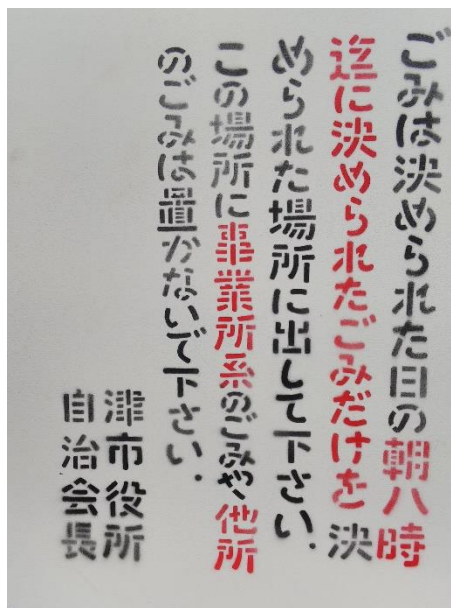 ごみは決められた日の朝八時
迄に決められたごみだけを決
められた場所に出して下さい.
この場所に事業所系のごみや他所
のごみは置かないで下さい.
津市役所
自治会長